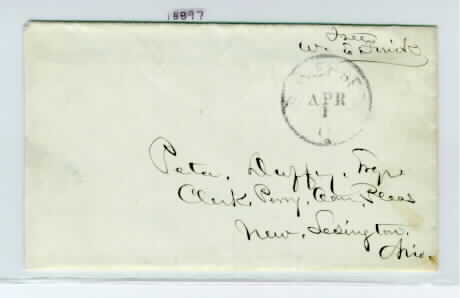 18897
Free
Wm E Smith
APR
1
Peter Duffy, Esqr
Clerk, Perry, Com, Pleas
New, Lexington,
Ohio.